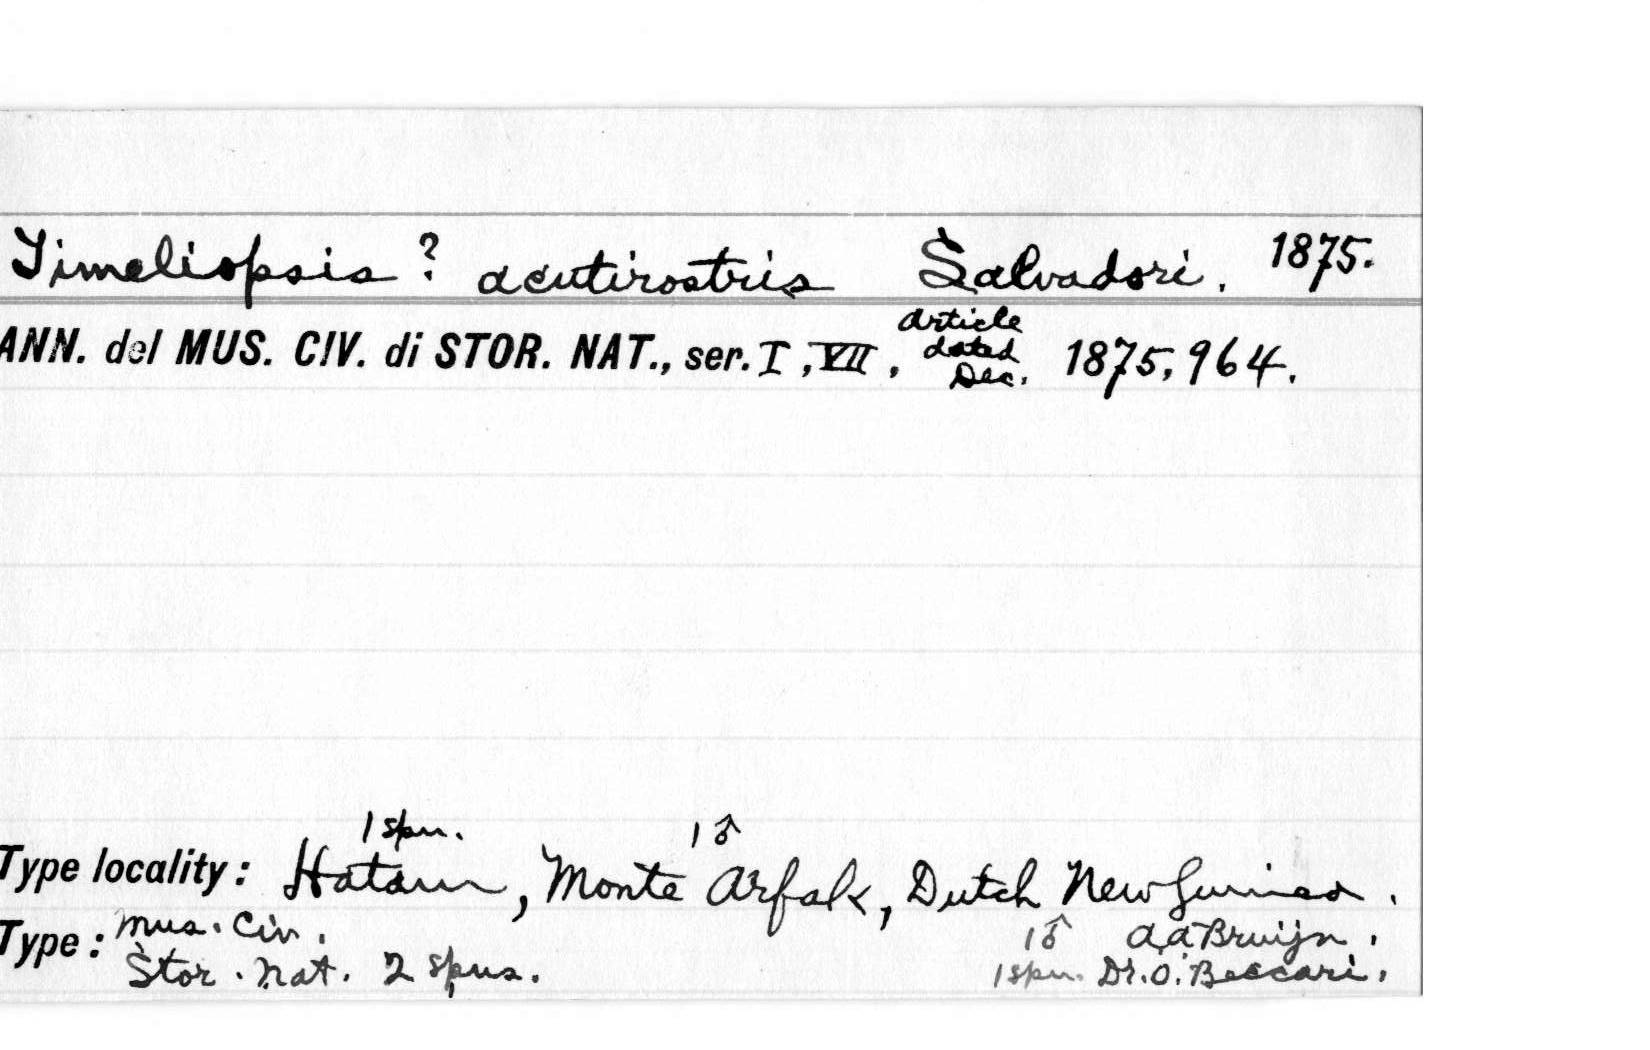 Timeliopsis ? acutirostris Salvadori. 1875.
ANN. del MUS. CIV. di STOR. NAT., ser. I, VII, article dated Dec. 1875, 964.
1 spn. 1♂
Type locality: Hatam, Monte Arfak, Dutch New Guinea.
Type: Mus. Civ. 1♂ A.A. Bruijn.
Stor. Nat. 2 spns. 1 spn. Dr. O. Beccari.